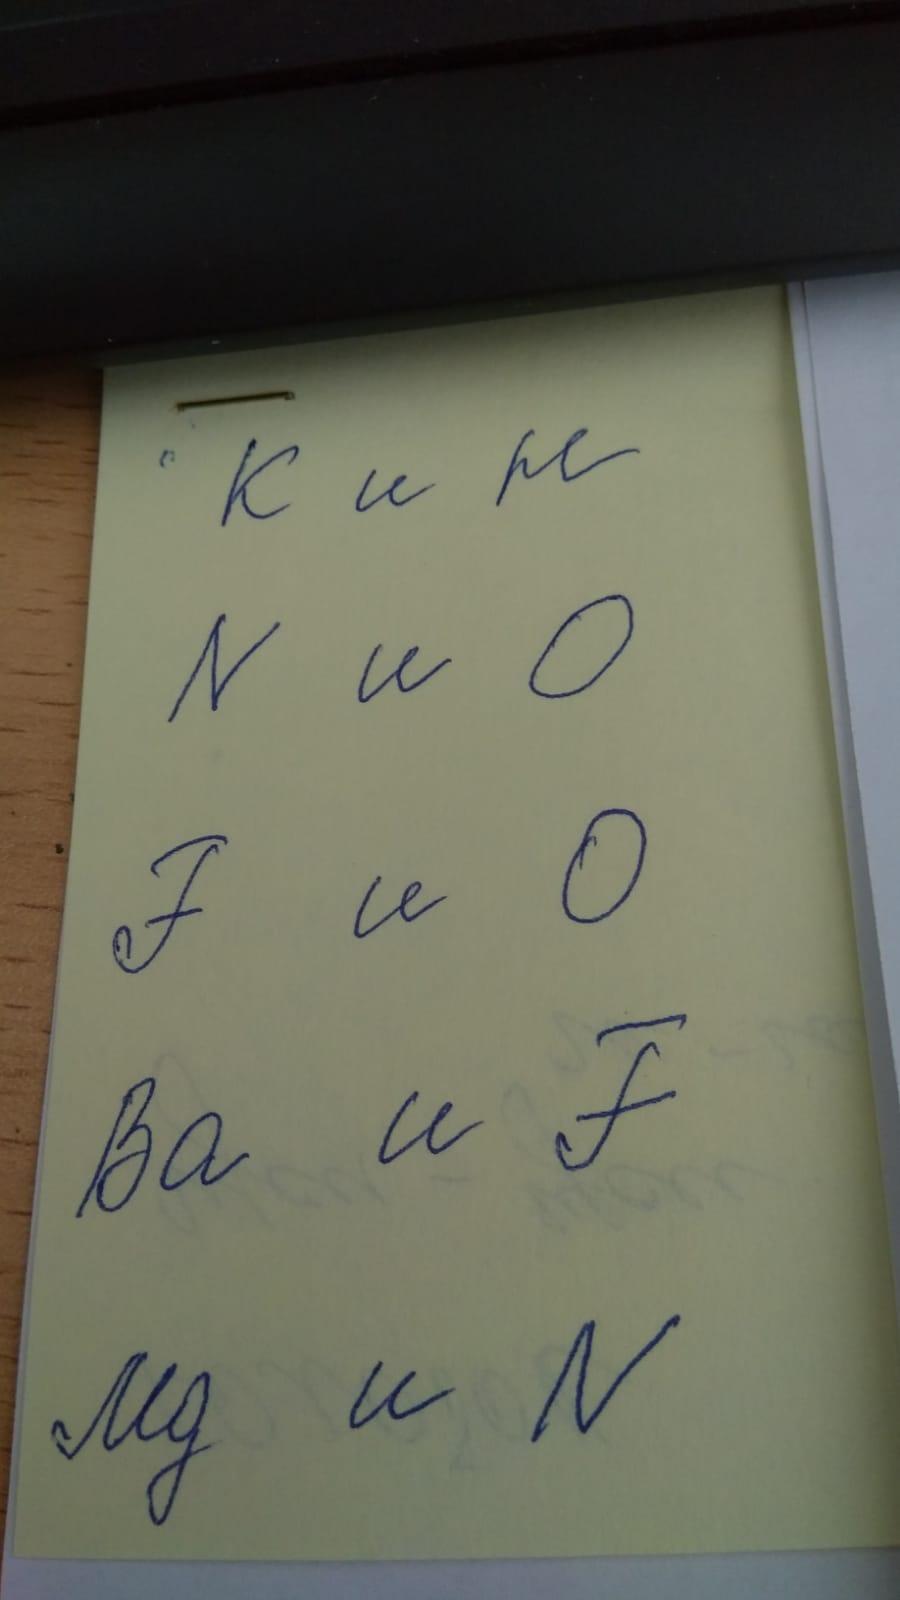 K и
N и O
F и O
Ba и F
Mg и N